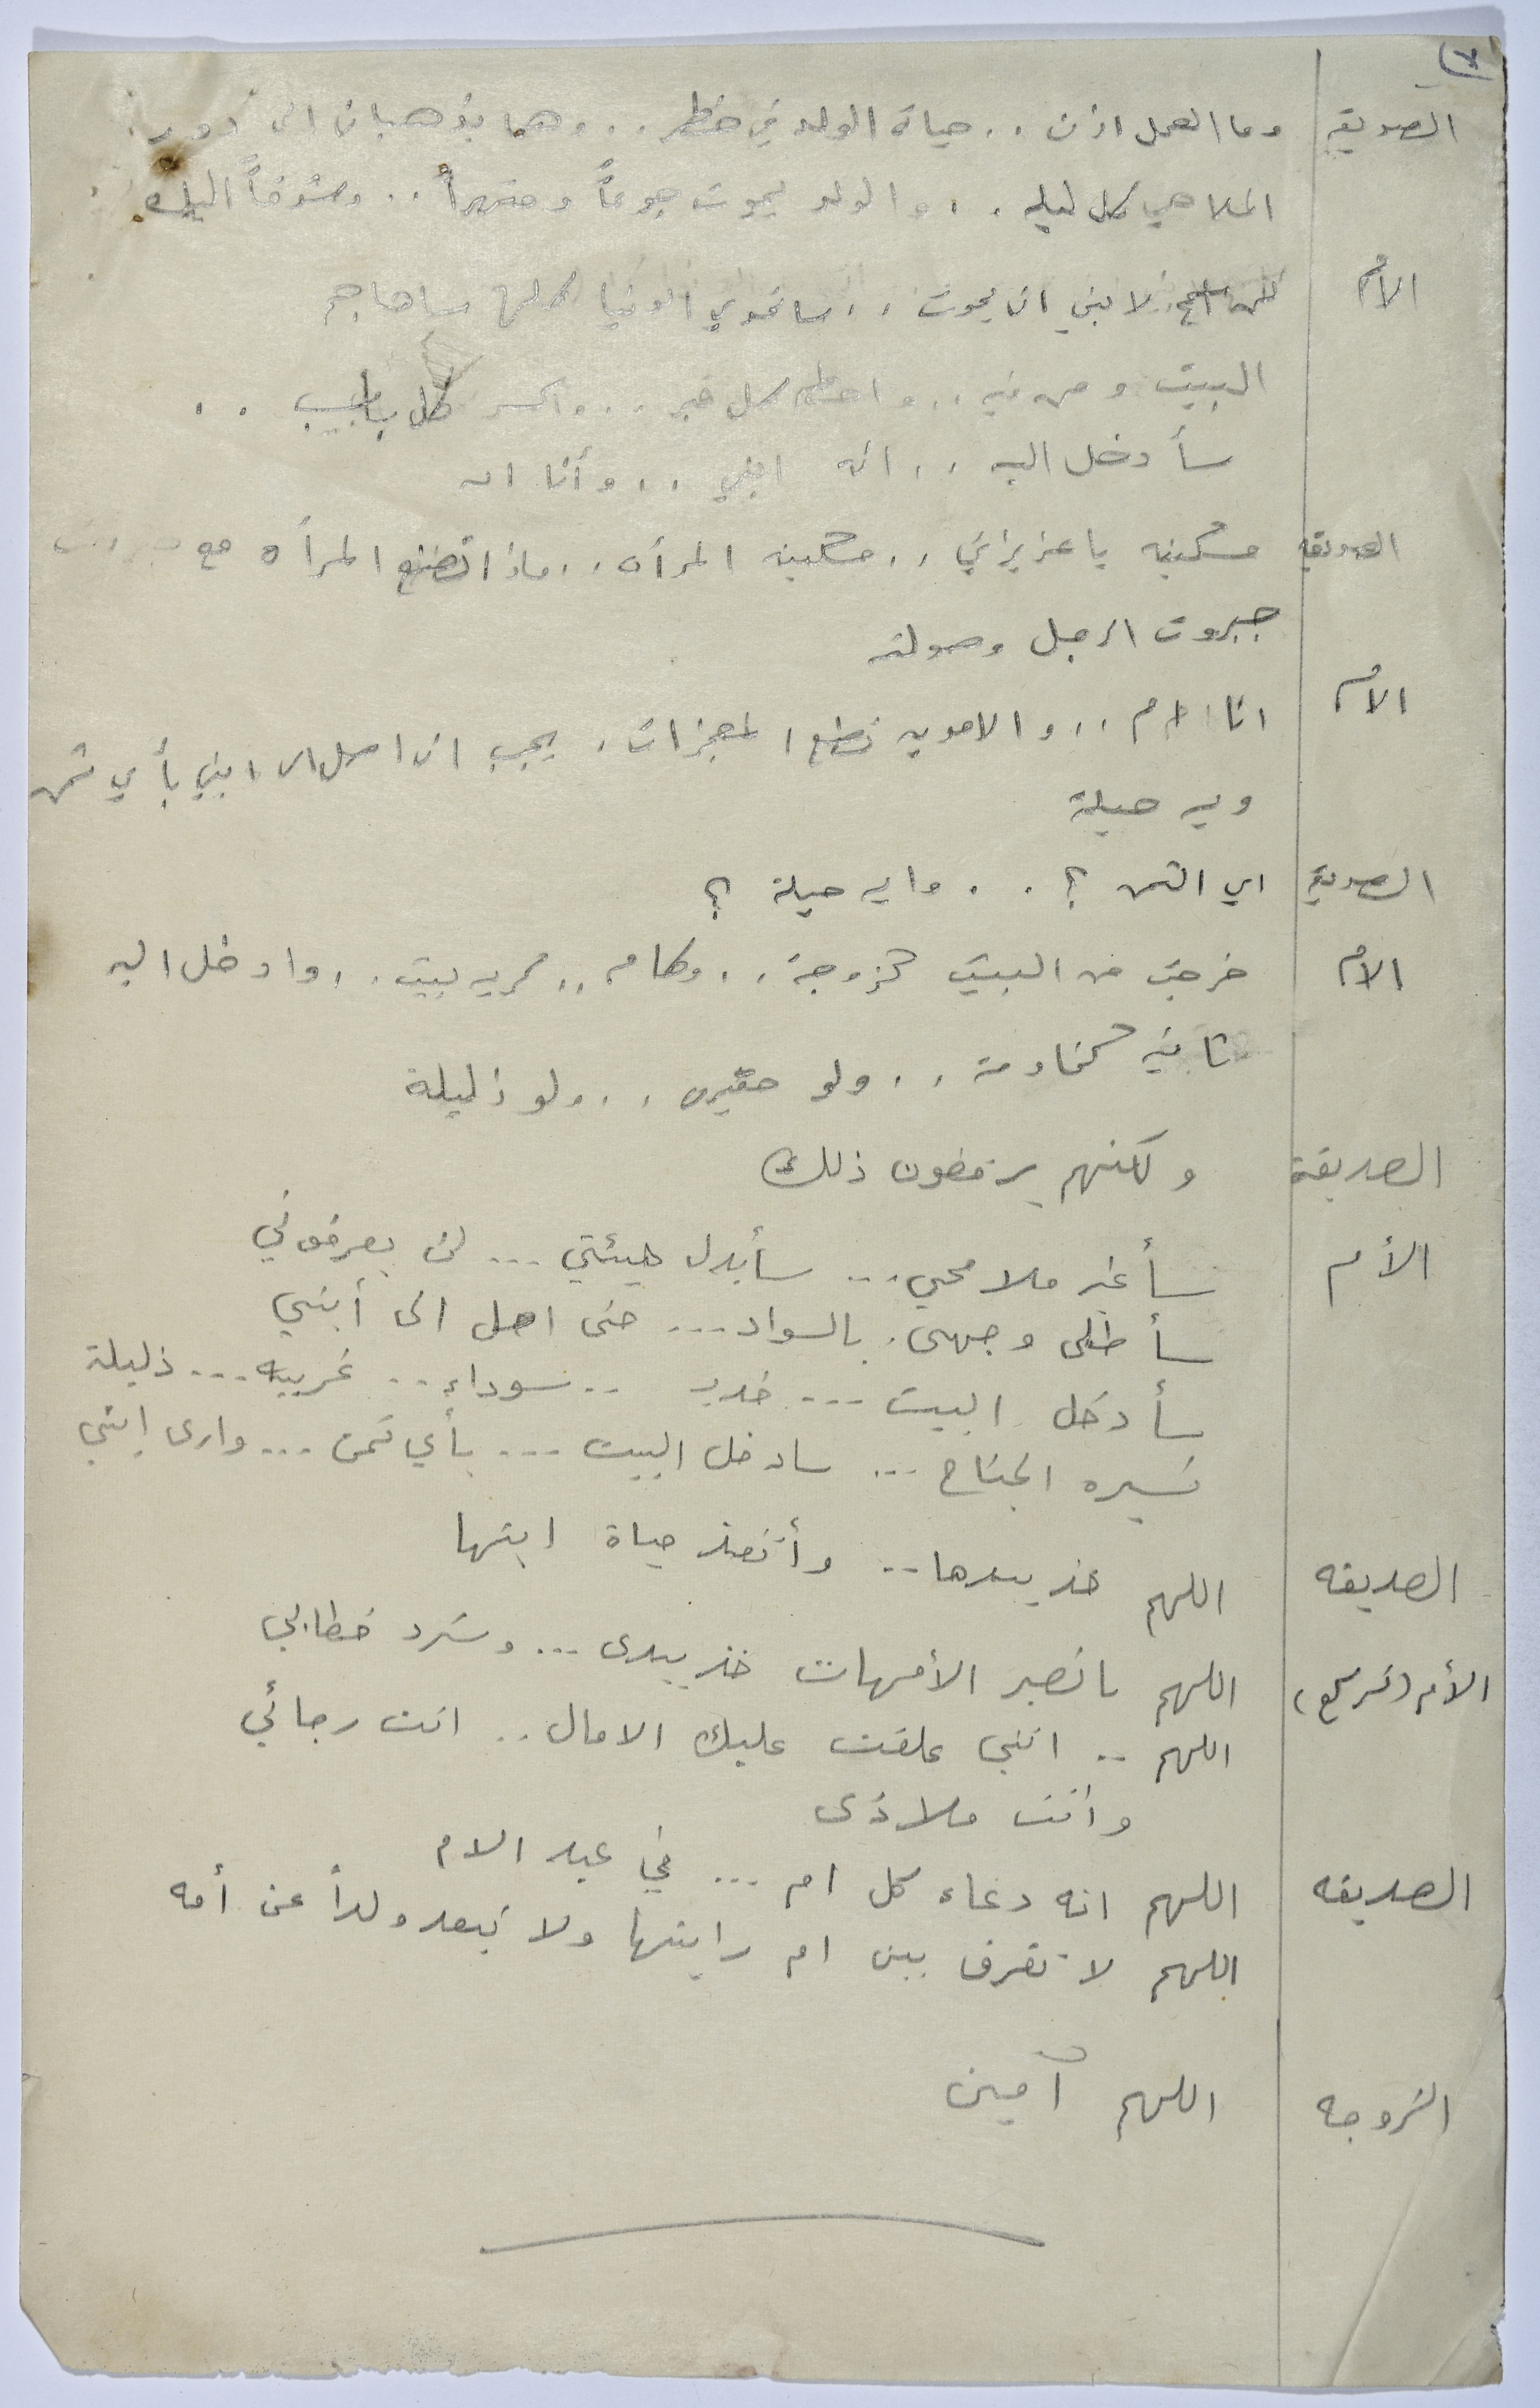 الصديقة وما العمل اذن .. حياة الولد في خطر .. وهما يذهبان الى دور
الملاهي كل ليله .. والولد يموت جوعاً وقهراً .. وشوقاً اليك
الأم لن اسمح لابني ان يموت .. ساتحدى الدنيا كلها ساهاجم
البيت ومن فيه .. واحطم كل .. واكسر كل باب ..
سأدخل اليه .. انه ابني .. وأنا امه
الصديقه مسكينه يا عزيزتي .. مسكينه المرأه .. ماذا تصنع المرأه مع
جبروت الرجل وصولته
الأم انا ام .. والامومه تصنع المعجزات . يجب ان اصل الى ابني بأي ثمن
وبأيه حيلة
الصديقة اي الثمن ؟ .. وايه حيلة ؟
الأم خرجت من البيت كزوجة .. وكام .. كربه بيت .. وادخل اليه
ثانيه كخادمة .. ولو حقيره .. ولو ذليلة
الصديقة ولكنهم يرفضون ذلك
الأم سأغير ملامحي ... سأبدل هيئتي ... لن يعرفوني
سأطلى وجهى بالسواد ... حتى اصل الى أبني
سأدخل البيت ... .. سوداء .. غريبه ... ذليلة
كسيره الجناح ... سادخل البيت ... بأي ثمن ... وارى إبني
الصديقه اللهم خذ بيدها .. وأنقذ حياة ابنها
الأم (تركع) اللهم يا نصير الأمهات خذ بيدى ... وسدد خطاي
اللهم .. انني علقت عليك الامال .. انت رجائي
وانت ملاذى
الصديقه اللهم انه دعاء كل ام ... في عيد الام
اللهم لا تفرق بين ام وابنها ولا تبعد ولداً عن أمه
الزوجه اللهم آمين